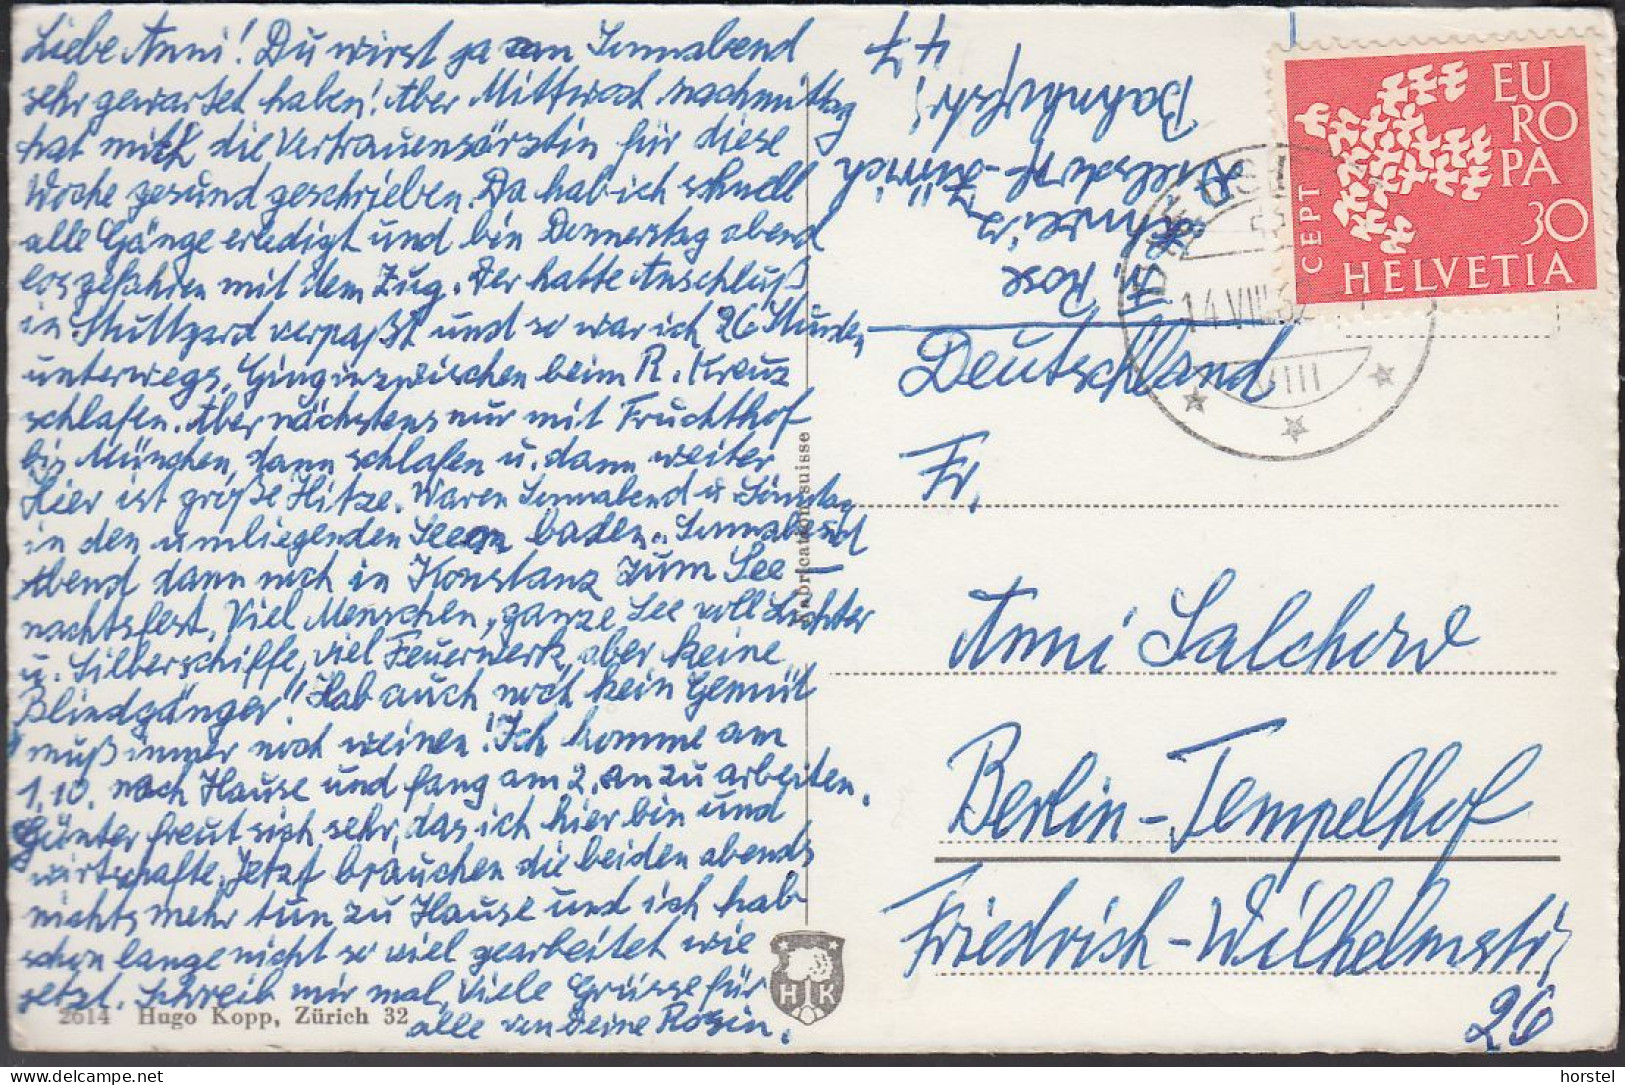 Liebe Anni! Du wirst ja am Sonnabend
sehr gewartet haben! Aber Mittwoch nachmittag
hat mich die Vertrauensärztin für diese
Woche gesund geschrieben. Da hab ich schnell
alle Gänge erledigt und bin Donnerstag abend
losgefahren mit dem Zug. Der hatte Anschluß
in Stuttgard verpaßt und so war ich 26 Stunden
unterwegs. Ging inzwischen beim R. Kreuz
schlafen. Aber nächstens nur mit
bis München, dann schlafen u. dann weiter
Hier ist große Hitze. Waren Sonnabend u. Sonntag
in den umliegenden Seen baden. Sonnabend
Abend dann noch in Konstanz zum See-
nachtsfest. Viel Menschen, ganze See voll Lichter
u. Silberschiffe, viel Feuerwerk, aber keine
Blindgänger! Hab auch noch kein Gemüt
muß immer noch weinen! Ich komme am
1.10. nach Hause und fang am 2. an zu arbeiten.
Günter freut sich sehr, das ich hier bin und
wirtschafte. Jetzt brauchen die beiden abends
nichts mehr tun zu Hause und ich hab
schon lange nicht so viel gearbeitet wie
jetzt. Schreib mir mal, Viele Grüsse für
alle von Deine Rosin.
2614 Hugo Kopp, Zürich 32
Fabrication suisse
H K
Rose
Schweiz
Dielsdorf-Zürich
Bahnhofstr!
47
EU
RO
PA
30
CEPT
HELVETIA
14.VIII.62
VIII
Deutschland
Fr.
Anni Salchow
Berlin-Tempelhof
Friedrich-Wilhelmstr.
26
horstel